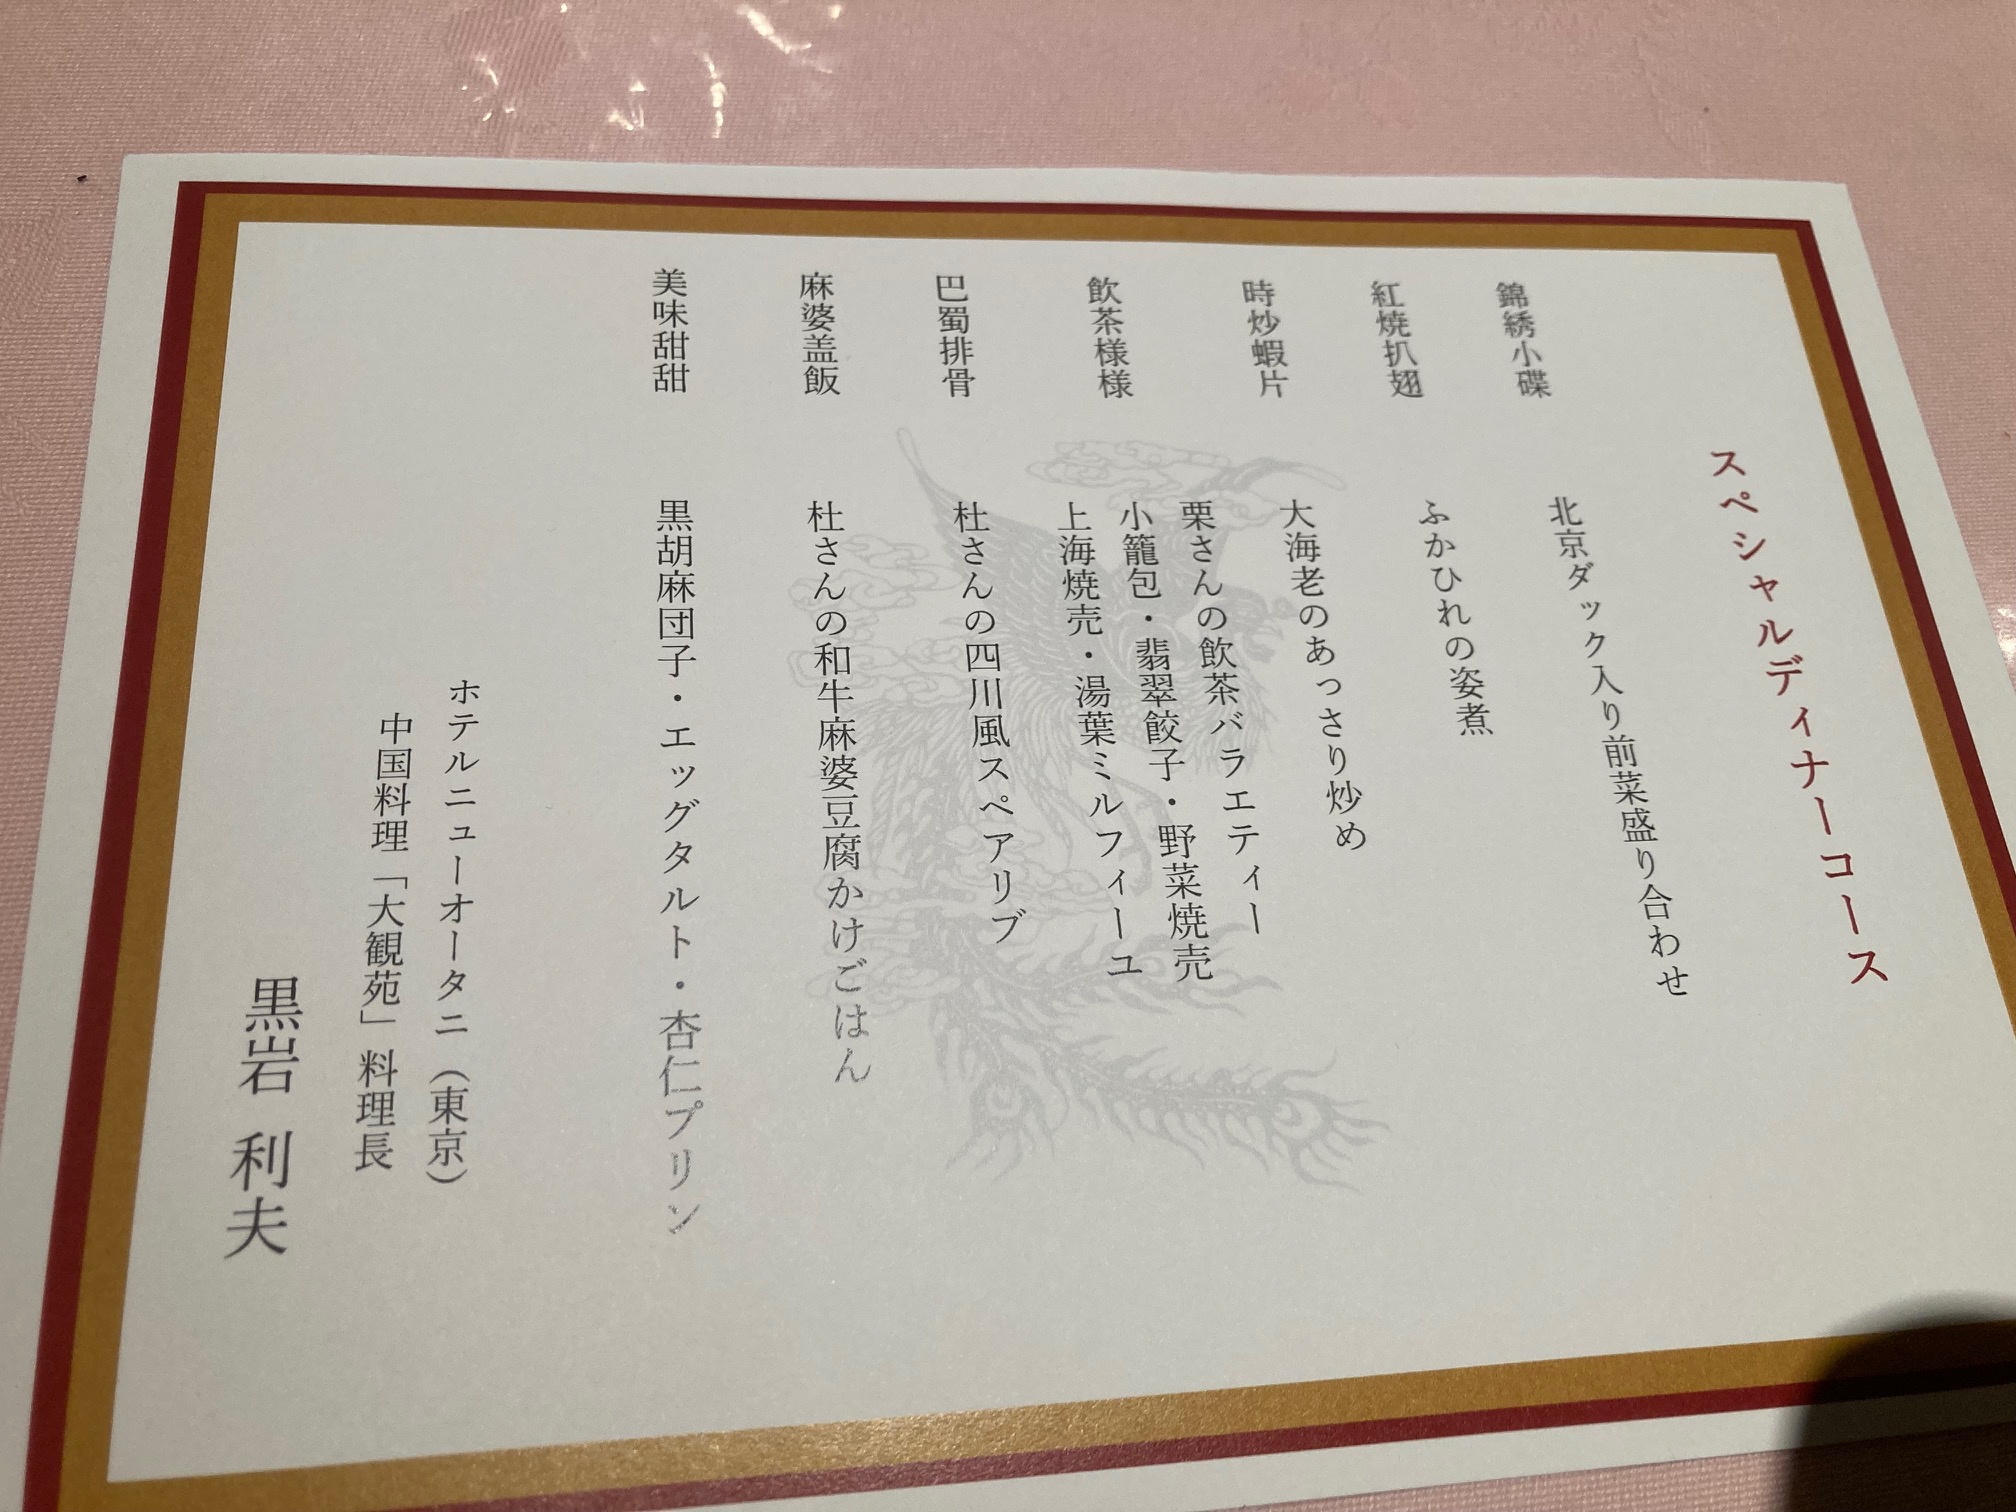 スペシャルディナーコース
錦綉小碟 北京ダック入り前菜盛り合わせ
紅焼扒翅 ふかひれの姿煮
時炒蝦片 大海老のあっさり炒め
飲茶様様 栗さんの飲茶バラエティー
小籠包・翡翠餃子・野菜焼売
上海焼売・湯葉ミルフィーユ
巴蜀排骨 杜さんの四川風スペアリブ
麻婆盖飯 杜さんの和牛麻婆豆腐かけごはん
美味甜甜 黒胡麻団子・エッグタルト・杏仁プリン
ホテルニューオータニ（東京）
中国料理「大観苑」料理長
黒岩 利夫